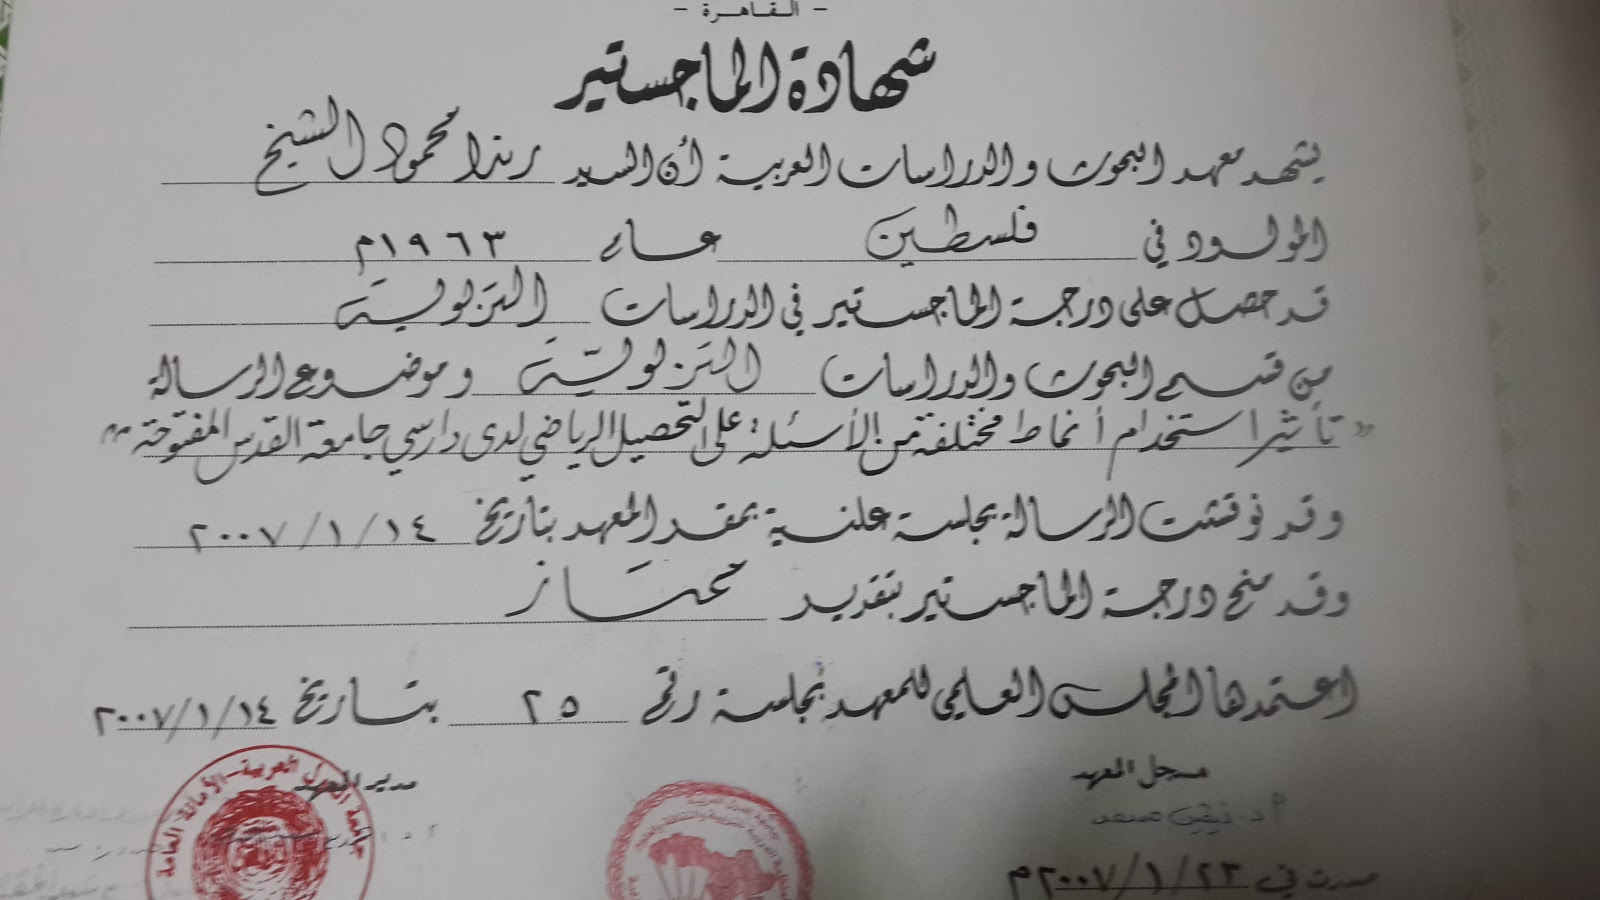 - القاهرة -
شهادة الماجستير
يشهد معهد البحوث والدراسات العربية أن السيد رندا محمود الشيخ
المولود في فلسطين عام ١٩٦٣م
قد حصل على درجة الماجستير في الدراسات التربوية
من قسم البحوث والدراسات التربوية وموضوع الرسالة
"تأثير استخدام أنماط مختلفة من الأسئلة على التحصيل الرياضي لدى دارسي جامعة القدس المفتوحة"
وقد نوقشت الرسالة بجلسة علنية بمقر المعهد بتاريخ ٢٠٠٧/١/١٤
وقد منح درجة الماجستير بتقدير ممتاز
اعتمدها المجلس العلمي للمعهد بجلسة رقم ٢٥ بتاريخ ٢٠٠٧/١/١٤
مسجل المعهد
مدير المعهد
جامعة الدول العربية - الأمانة العامة
أ.د.
صدرت في ٢٠٠٧/١/٢٣م